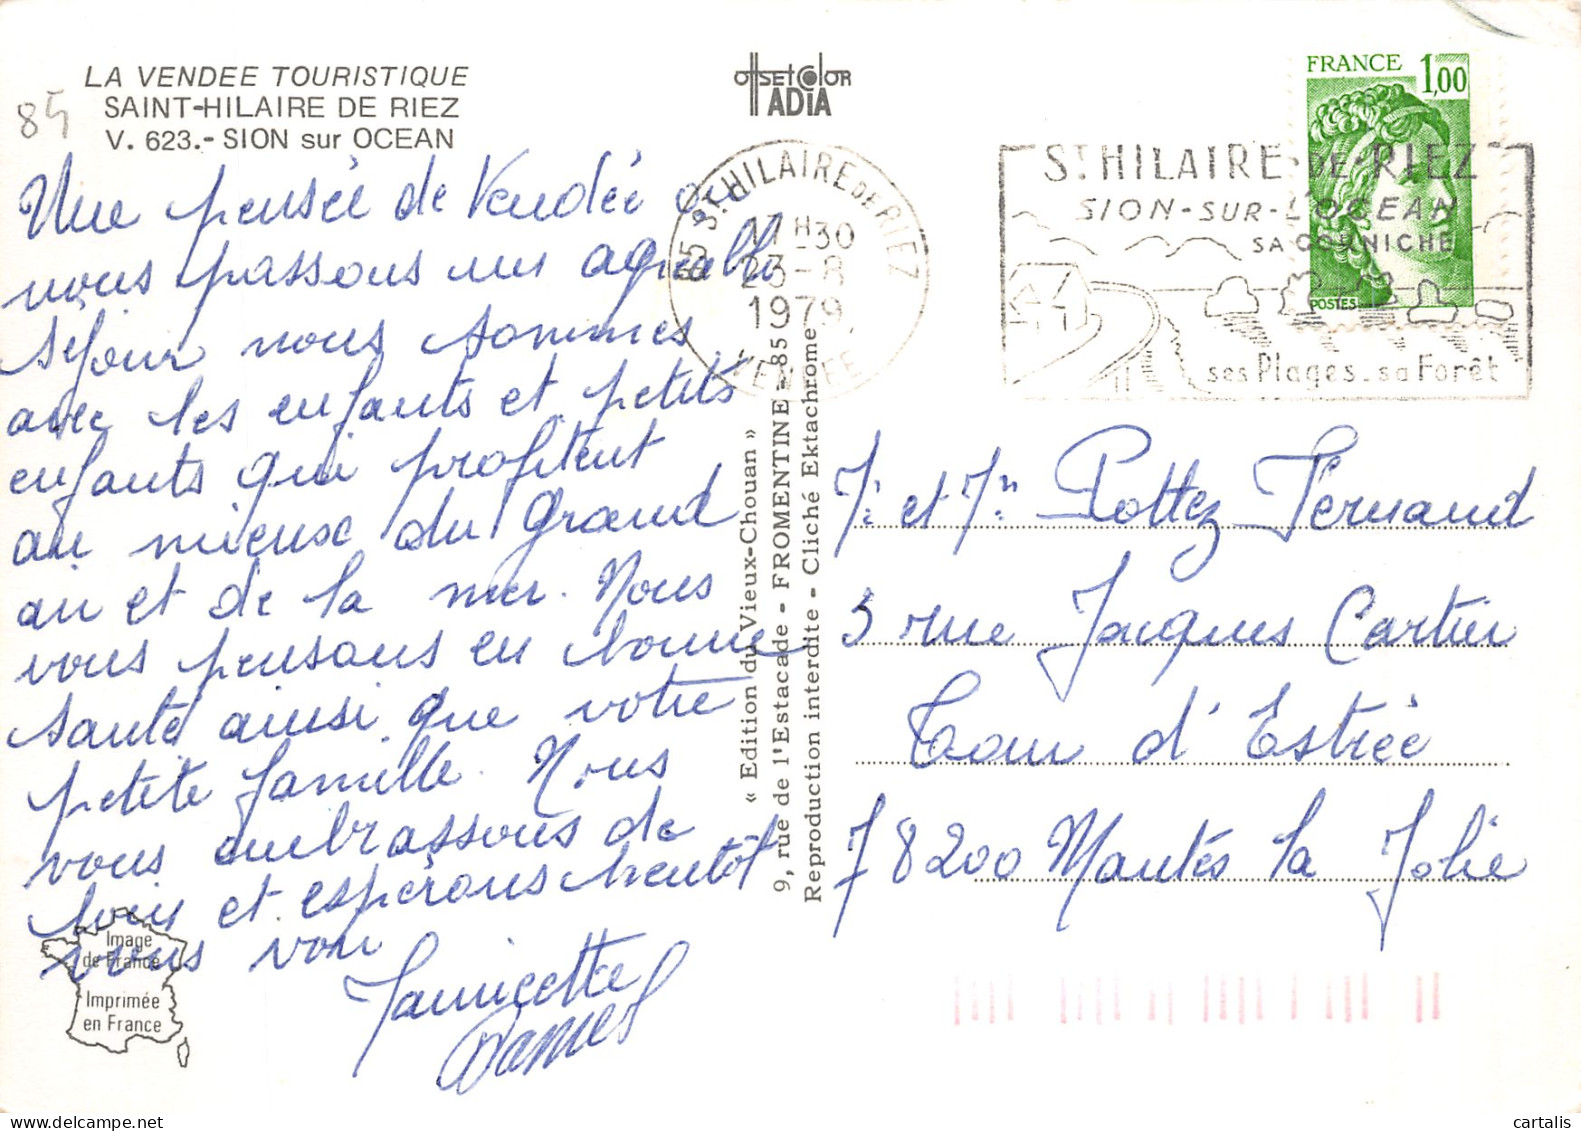 LA VENDEE TOURISTIQUE
SAINT-HILAIRE DE RIEZ
V. 623.- SION sur OCEAN
85
Une pensée de Vendée où
nous passons un agréable
séjour nous sommes
avec les enfants et petits
enfants qui profitent
au mieux du grand
air et de la mer. Nous
vous pensons en bonne
santé ainsi que votre
petite famille. Nous
vous embrassons de
loin et espérons bientôt
vous voir
Image
de France
Imprimée
en France
OffsetColor
ADIA
85 ST HILAIRE DE RIEZ
17H30
23-8
1979
VENDEE
« Edition du Vieux-Chouan »
9, rue de l'Estacade - FROMENTINE - 85
Reproduction interdite - Cliché Ektachrome
FRANCE 1,00
POSTES
ST HILAIRE-DE-RIEZ
SION-SUR-L'OCEAN
SA CORNICHE
ses Plages. sa Forêt
Pottez Fernand
3 rue Jacques Cartier
Tour d'Estrée
78200 Mantes la Jolie
cartalis | delcampe.net